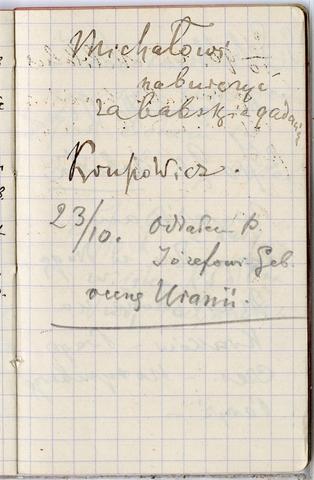 Michałowi
naburczyć
za babskie gadanie
Krupowicz.
23/10. Oddałem p.
Józefowi Geb.
ocenę Uranii.